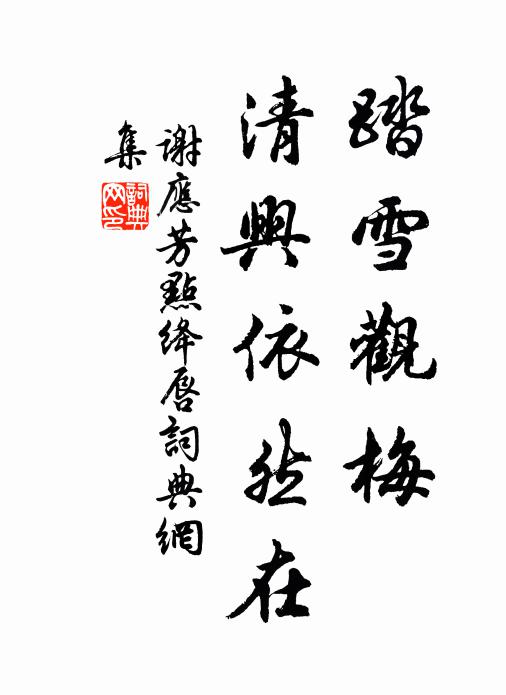 踏雪觀梅
清興依然在
謝應芳點絳唇詞典網
集
詞典
网印